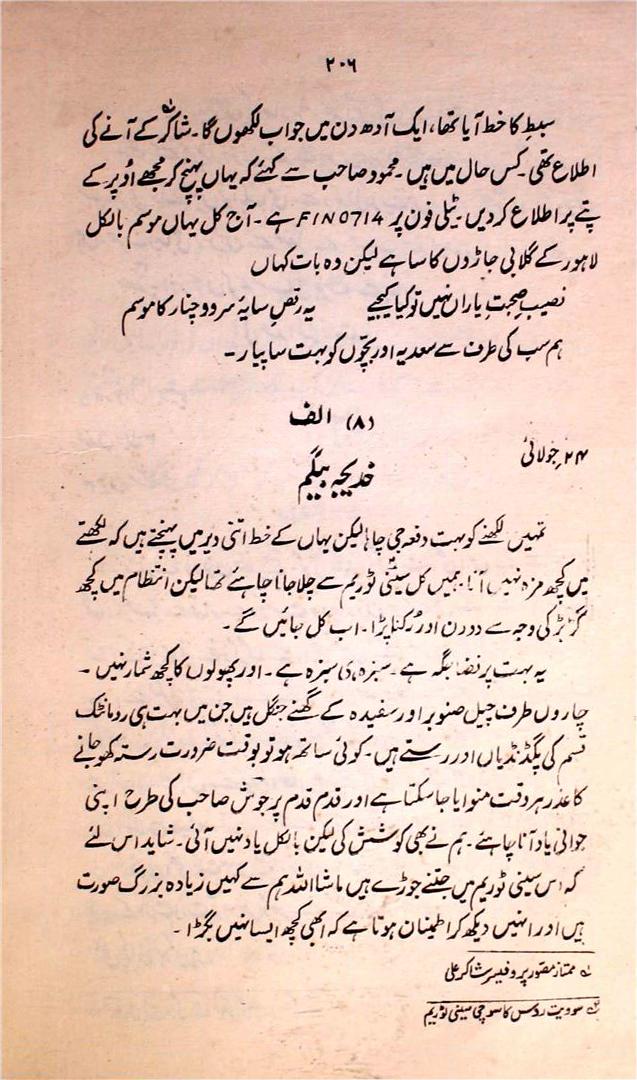 ۲۰۶
سبطِ کا خط آیا تھا، ایک آدھ دن میں جواب لکھوں گا۔ شاکر؎۱ کے آنے کی
اطلاع تھی۔ کس حال میں ہیں۔ محمود صاحب سے کہئے کہ یہاں پہنچ کر مجھے اُوپر کے
پتے پر اطلاع کر دیں۔ ٹیلی فون پر FIN0714 ہے۔ آج کل یہاں موسم بالکل
لاہور کے گلابی جاڑوں کا سا ہے لیکن وہ بات کہاں
نصیبِ صحبتِ یاراں نہیں تو کیا کیجیے یہ رقصِ سایۂ سرو و چنار کا موسم
ہم سب کی طرف سے سعدیہ اور بچّوں کو بہت سا پیار۔
(۸) الف
۲۴؍ جولائی
خدیجہ بیگم
تمہیں لکھنے کو بہت دفعہ جی چاہا لیکن یہاں کے خط اتنی دیر میں پہنچتے ہیں کہ لکھتے
میں کچھ مزہ نہیں آتا۔ ہمیں کل سینی؎۲ ٹوریم سے چلا جانا چاہئے تھا لیکن انتظام میں کچھ
گڑبڑ کی وجہ سے دو دن اور رُکنا پڑا۔ اب کل جائیں گے۔
یہ بہت پر فضا جگہ ہے۔ سبزہ ہی سبزہ ہے۔ اور پھولوں کا کچھ شمار نہیں۔
چاروں طرف چیل صنوبر اور سفیدہ کے گھنے جنگل ہیں جن میں بہت ہی رومانٹک
قسم کی پگڈنڈیاں اور رستے ہیں۔ کوئی ساتھ ہو تو بوقت ضرورت رستہ کھو جانے
کا عذر ہر وقت منوایا جا سکتا ہے اور قدم قدم پر جوش صاحب کی طرح اپنی
جوانی یاد آنا چاہئے۔ ہم نے بھی کوشش کی لیکن بالکل یاد نہیں آئی۔ شاید اس لئے
کہ اس سینی ٹوریم میں جتنے جوڑے ہیں ماشااللہ ہم سے کہیں زیادہ بزرگ صورت
ہیں اور انہیں دیکھ کر اطمینان ہوتا ہے کہ ابھی کچھ ایسا نہیں بگڑا۔
؎۱ ممتاز مصور پروفیسر شاکر علی
؎۲ سوویت روس کا سوچی سینی ٹوریم